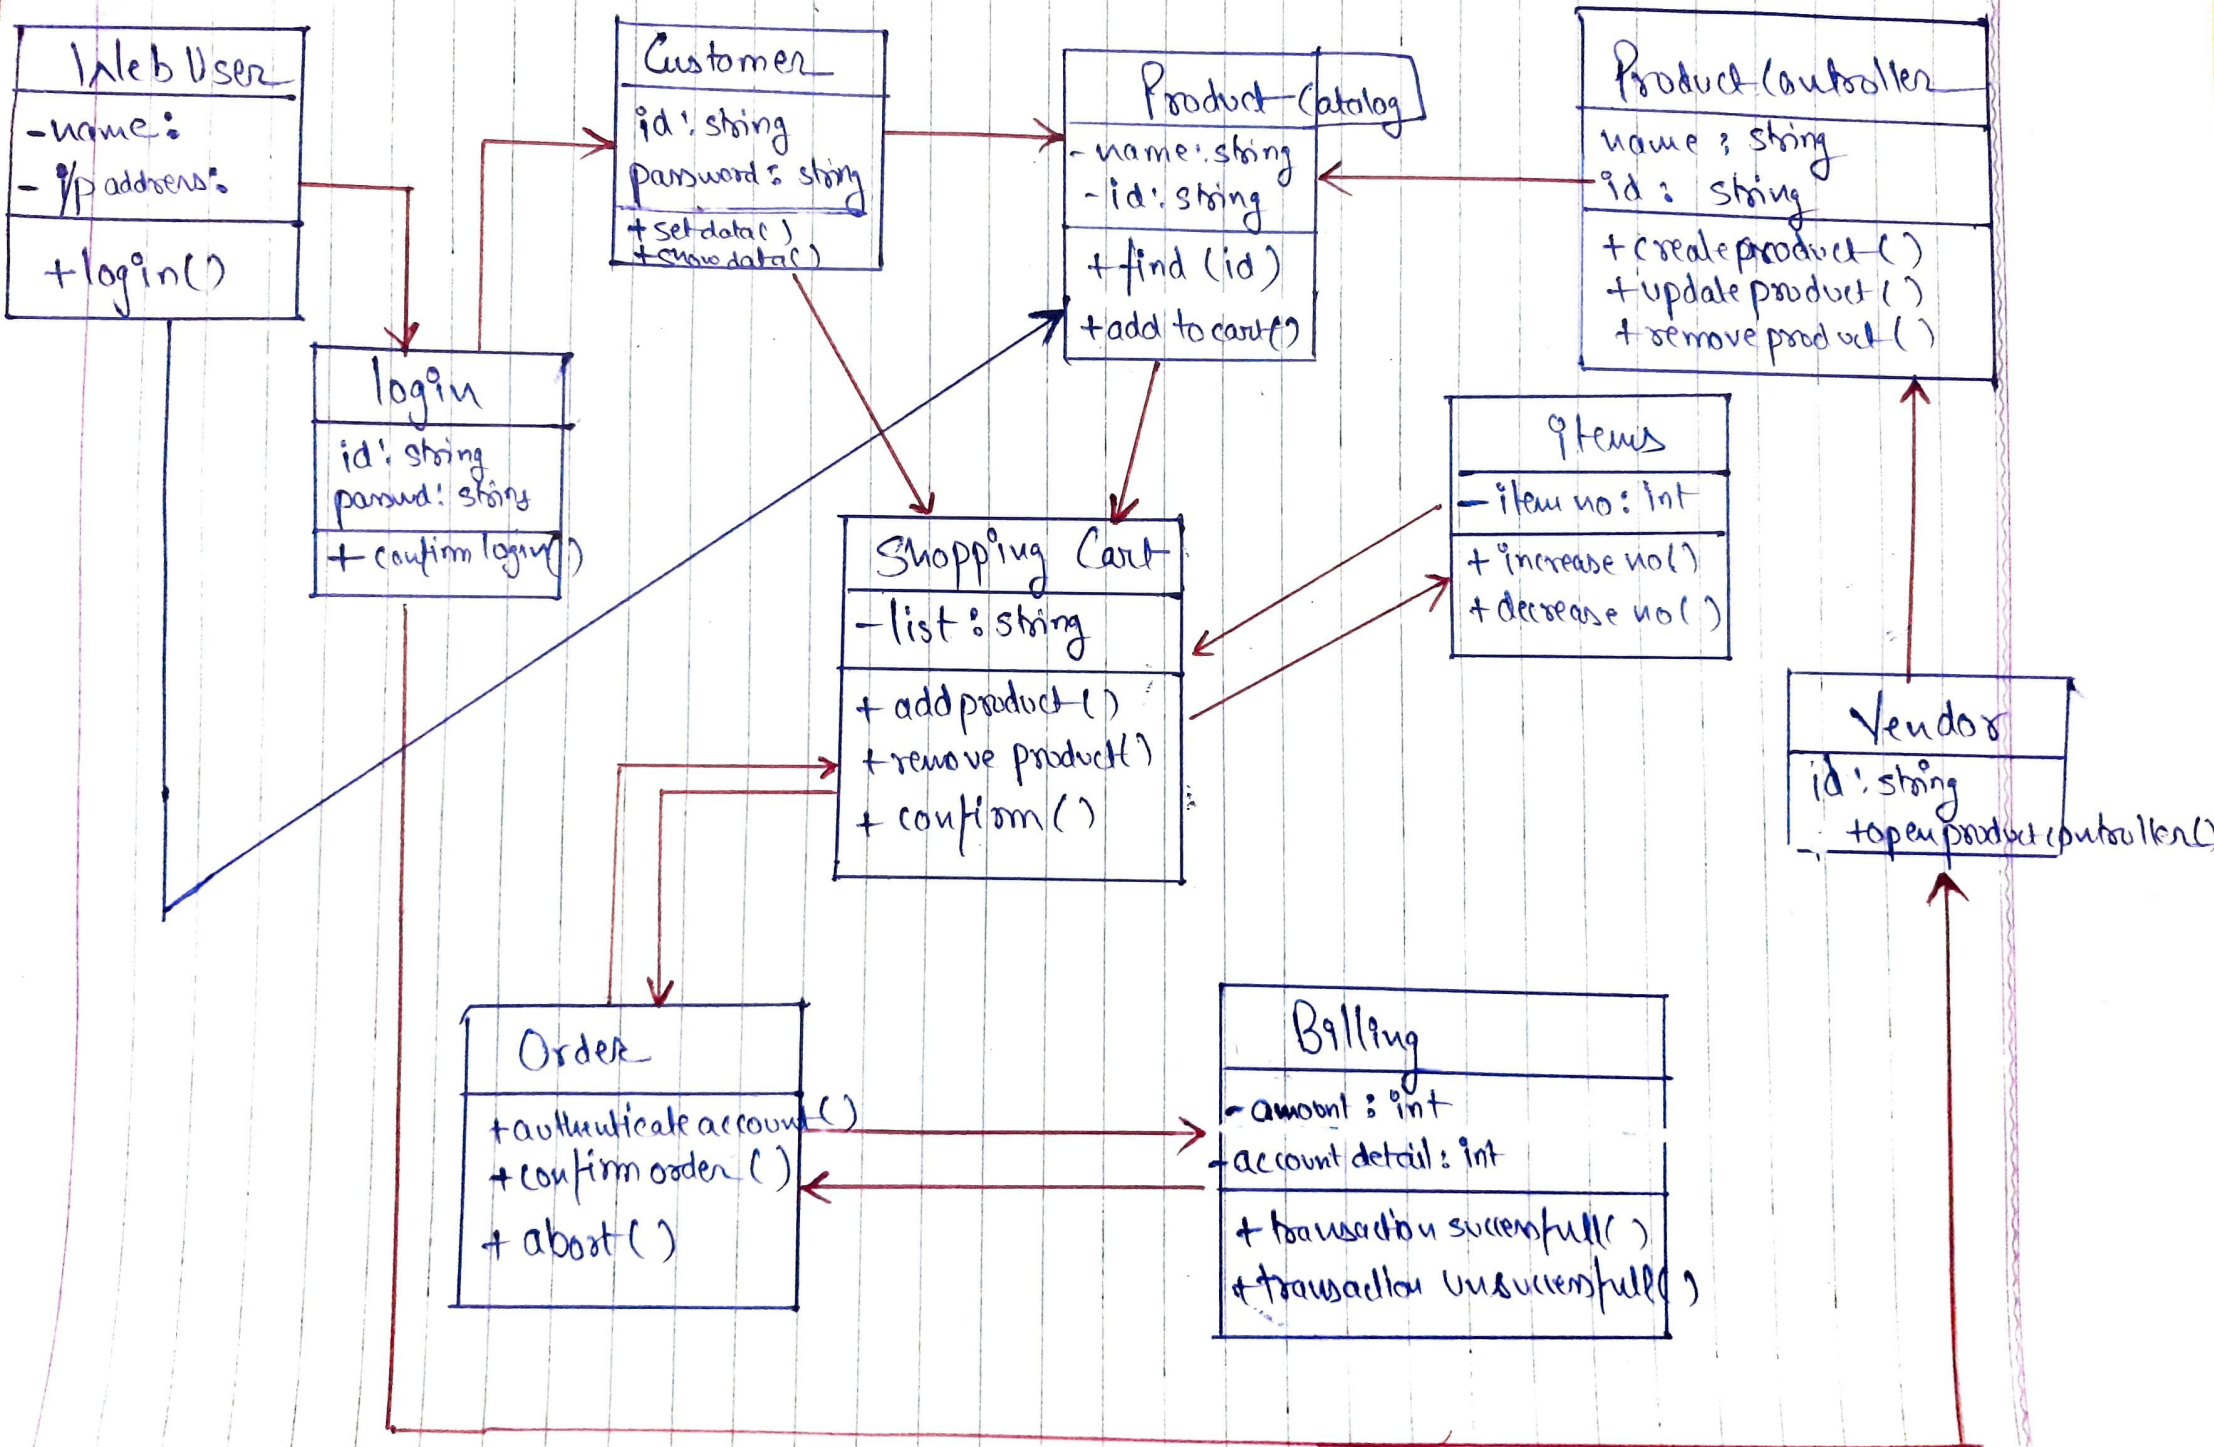 Web User
-name:
- i/p address:
+login()
Customer
id: string
password: string
+ setdata()
+showdata()
Product Catalog
-name: string
-id: string
+find (id)
+add to cart()
Product Controller
name : string
-id : string
+createproduct()
+updateproduct()
+removeproduct()
login
id: string
passwd: string
+ confirm login()
items
- item no: int
+ increase no()
+ decrease no()
Shopping Cart
-list : string
+ addproduct()
+remove product()
+ confirm()
Vendor
id: string
+openproductcontroller()
Order
+authenticate account()
+confirm order()
+ abort()
Billing
- amount : int
-account detail : int
+ transaction successfull()
+transaction unsuccessfull()